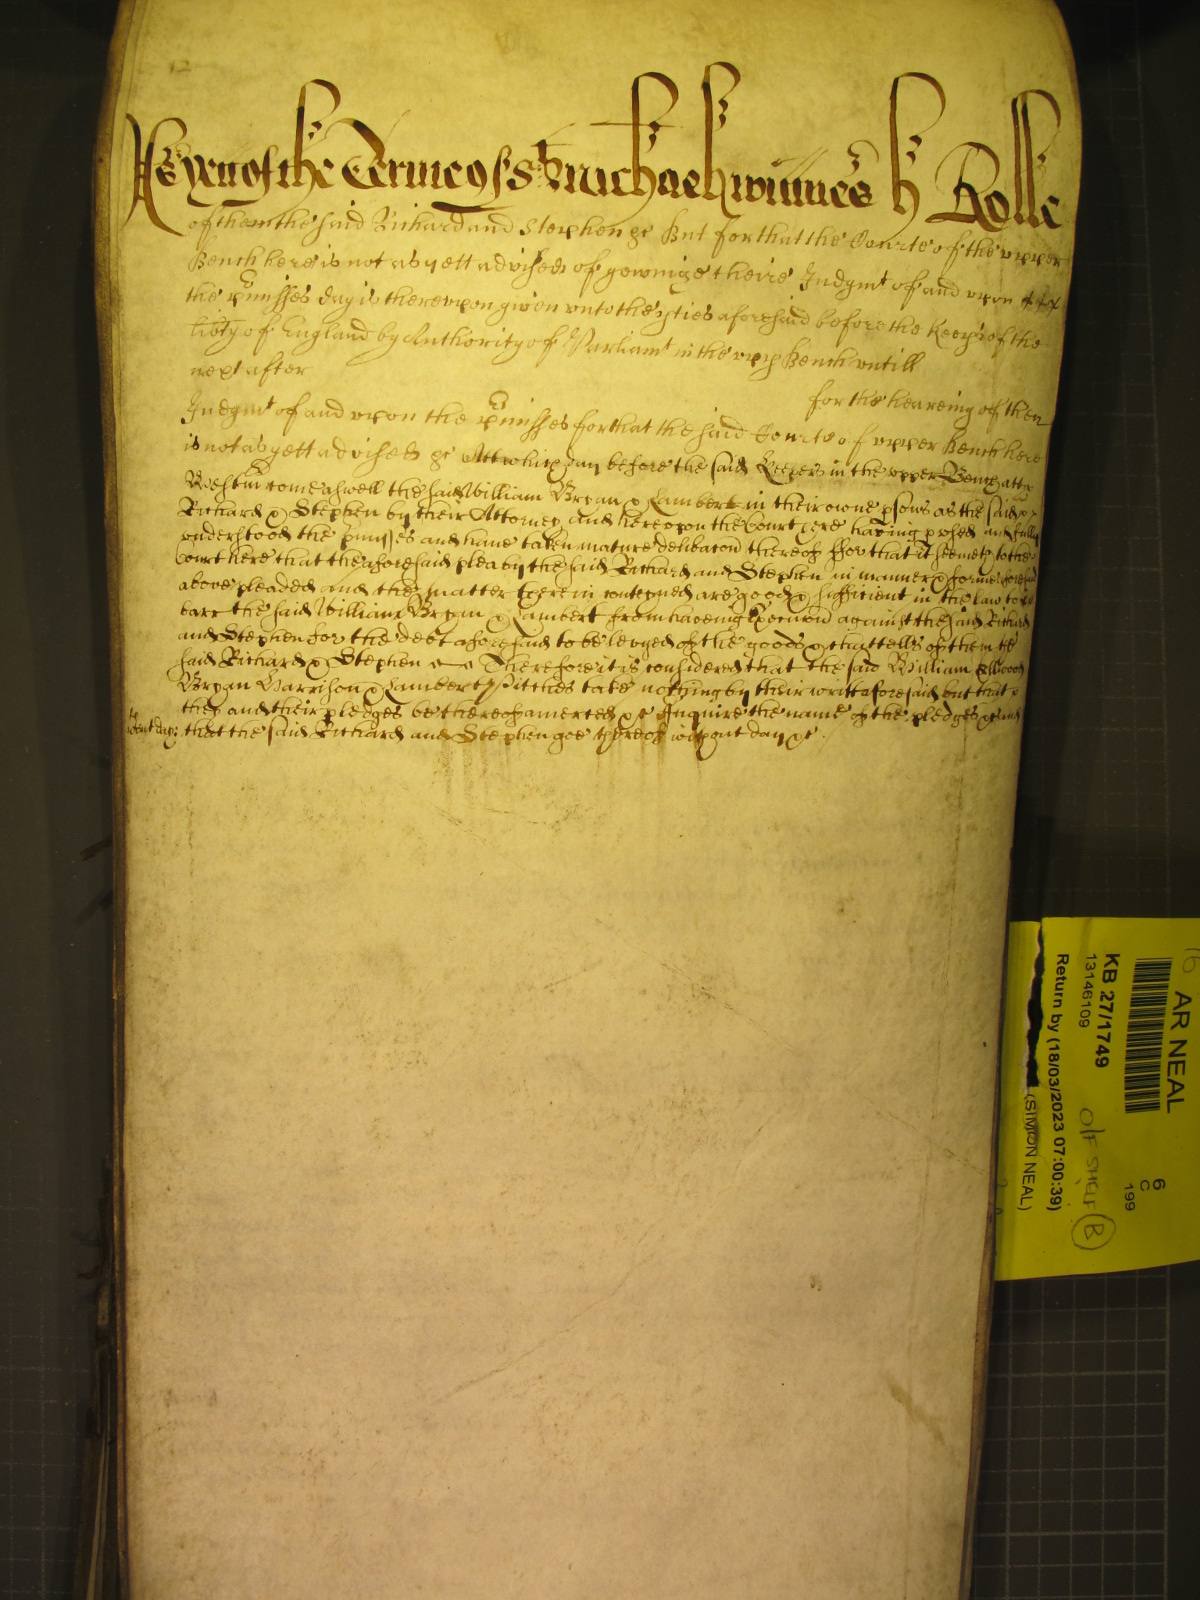 Yett of the Terme of St Michaell wittnes h Rolle
of them the said Richard and Stephen &c But for that the Courte of the upper
Bench here is not as yett advised of geveinge theire Judgmt of and upon
the pmisses day is thereupon given unto the pties aforesaid before the Keeps of the
libty of England by Authority of Parliamt in the upp Bench untill
next after for the heareing of their
Judgmt of and upon the pmisses for that the said Courte of upper Bench here
is not as yett advised &c Att which day before the said Keepers in the upper Bench att
Westm come aswell the said William Bryan & Lambert in their owne psons as the said
Richard & Stephen by their Attorney and hereupon the Court here having pused and fully
understood the pmisses and have taken mature delibacon thereof ffor that it seemeth to the
Court here that the aforesaid plea by the said Richard and Stephen in manner & forme aforesaid
above pleaded and the matter therein conteyned are good & sufficient in the law to
barr the said William Bryan & Lambert from haveing Execucon against the said Richard
and Stephen for the debt aforesaid to be levyed of the goods & chattells of them the
said Richard & Stephen Therefore it is considered that the said William Ellwood
Bryan Harrison & Lambert Pitches take nothing by their writt aforesaid but that
they and their pledges be thereof amerced &c Inquire the name of the pledges &c And
that the said Richard and Stephen goe thereof without day &c
without day:
AR NEAL
6
C
199
KB 27/1749
13146109
O/F SHELF B
Return by (18/03/2023 07:00:39)
(SIMON NEAL)